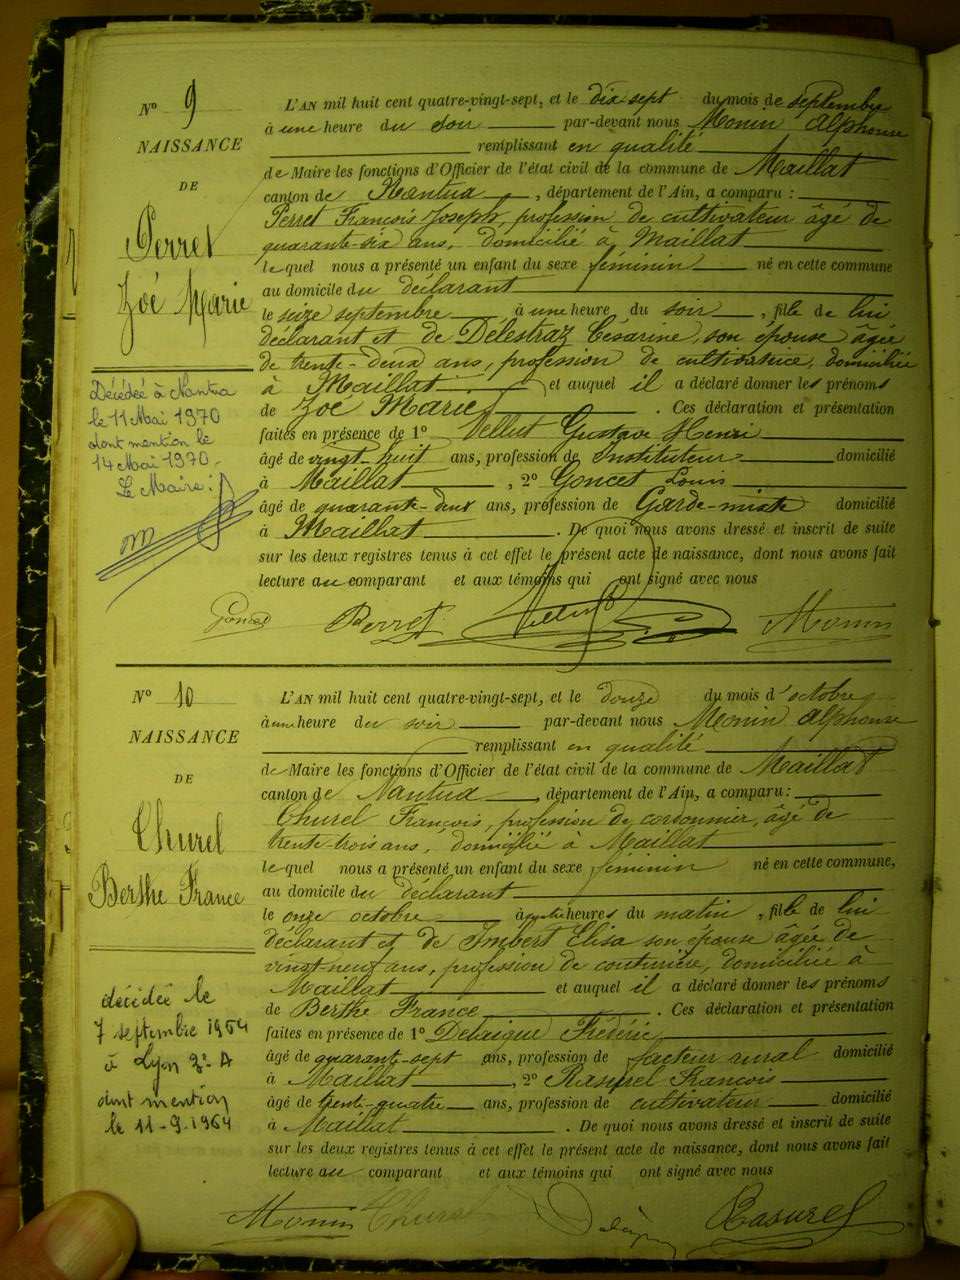 N° 9
NAISSANCE
DE
Perret
Zoé Marie
Décédée à Nantua
le 11 Mai 1970
dont mention le
14 Mai 1970.
Le Maire :
L'AN mil huit cent quatre-vingt-sept, et le dix sept du mois de septembre
à une heure du soir par-devant nous Monin Alphonse
remplissant en qualité
de Maire les fonctions d'Officier de l'état civil de la commune de Maillat
canton de Nantua, département de l'Ain, a comparu :
Perret François Joseph, profession de cultivateur âgé de
quarante-six ans, domicilié à Maillat
lequel nous a présenté un enfant du sexe féminin né en cette commune
au domicile du déclarant
le seize septembre à une heure du soir, fille de lui
déclarant et de Delestraz Césarine, son épouse âgée
de trente-deux ans, profession de cultivatrice, domiciliée
à Maillat et auquel il a déclaré donner les prénoms
de Zoé Marie. Ces déclaration et présentation
faites en présence de 1° Vellut Gustave Henri
âgé de vingt-huit ans, profession de Instituteur domicilié
à Maillat, 2° Goncet Louis
âgé de quarante-deux ans, profession de Garde-mixte domicilié
à Maillat. De quoi nous avons dressé et inscrit de suite
sur les deux registres tenus à cet effet le présent acte de naissance, dont nous avons fait
lecture au comparant et aux témoins qui ont signé avec nous
Goncet Perret Vellut Monin
N° 10
NAISSANCE
DE
Churel
Berthe France
décédée le
7 septembre 1964
à Lyon 3e A
dont mention
le 11-9-1964
L'AN mil huit cent quatre-vingt-sept, et le douze du mois d'octobre
à une heure du soir par-devant nous Monin Alphonse
remplissant en qualité
de Maire les fonctions d'Officier de l'état civil de la commune de Maillat
canton de Nantua, département de l'Ain, a comparu :
Churel François, profession de cordonnier, âgé de
trente-trois ans, domicilié à Maillat
lequel nous a présenté un enfant du sexe féminin né en cette commune,
au domicile du déclarant
le onze octobre à quatre heures du matin, fille de lui
déclarant et de Imbert Elisa son épouse âgée de
vingt-neuf ans, profession de couturière, domiciliée à
Maillat et auquel il a déclaré donner les prénoms
de Berthe France. Ces déclaration et présentation
faites en présence de 1° Delaigue Frédéric
âgé de quarante-sept ans, profession de facteur rural domicilié
à Maillat, 2° Rasurel François
âgé de trente-quatre ans, profession de cultivateur domicilié
à Maillat. De quoi nous avons dressé et inscrit de suite
sur les deux registres tenus à cet effet le présent acte de naissance, dont nous avons fait
lecture au comparant et aux témoins qui ont signé avec nous
Monin Churel Delaigue Rasurel